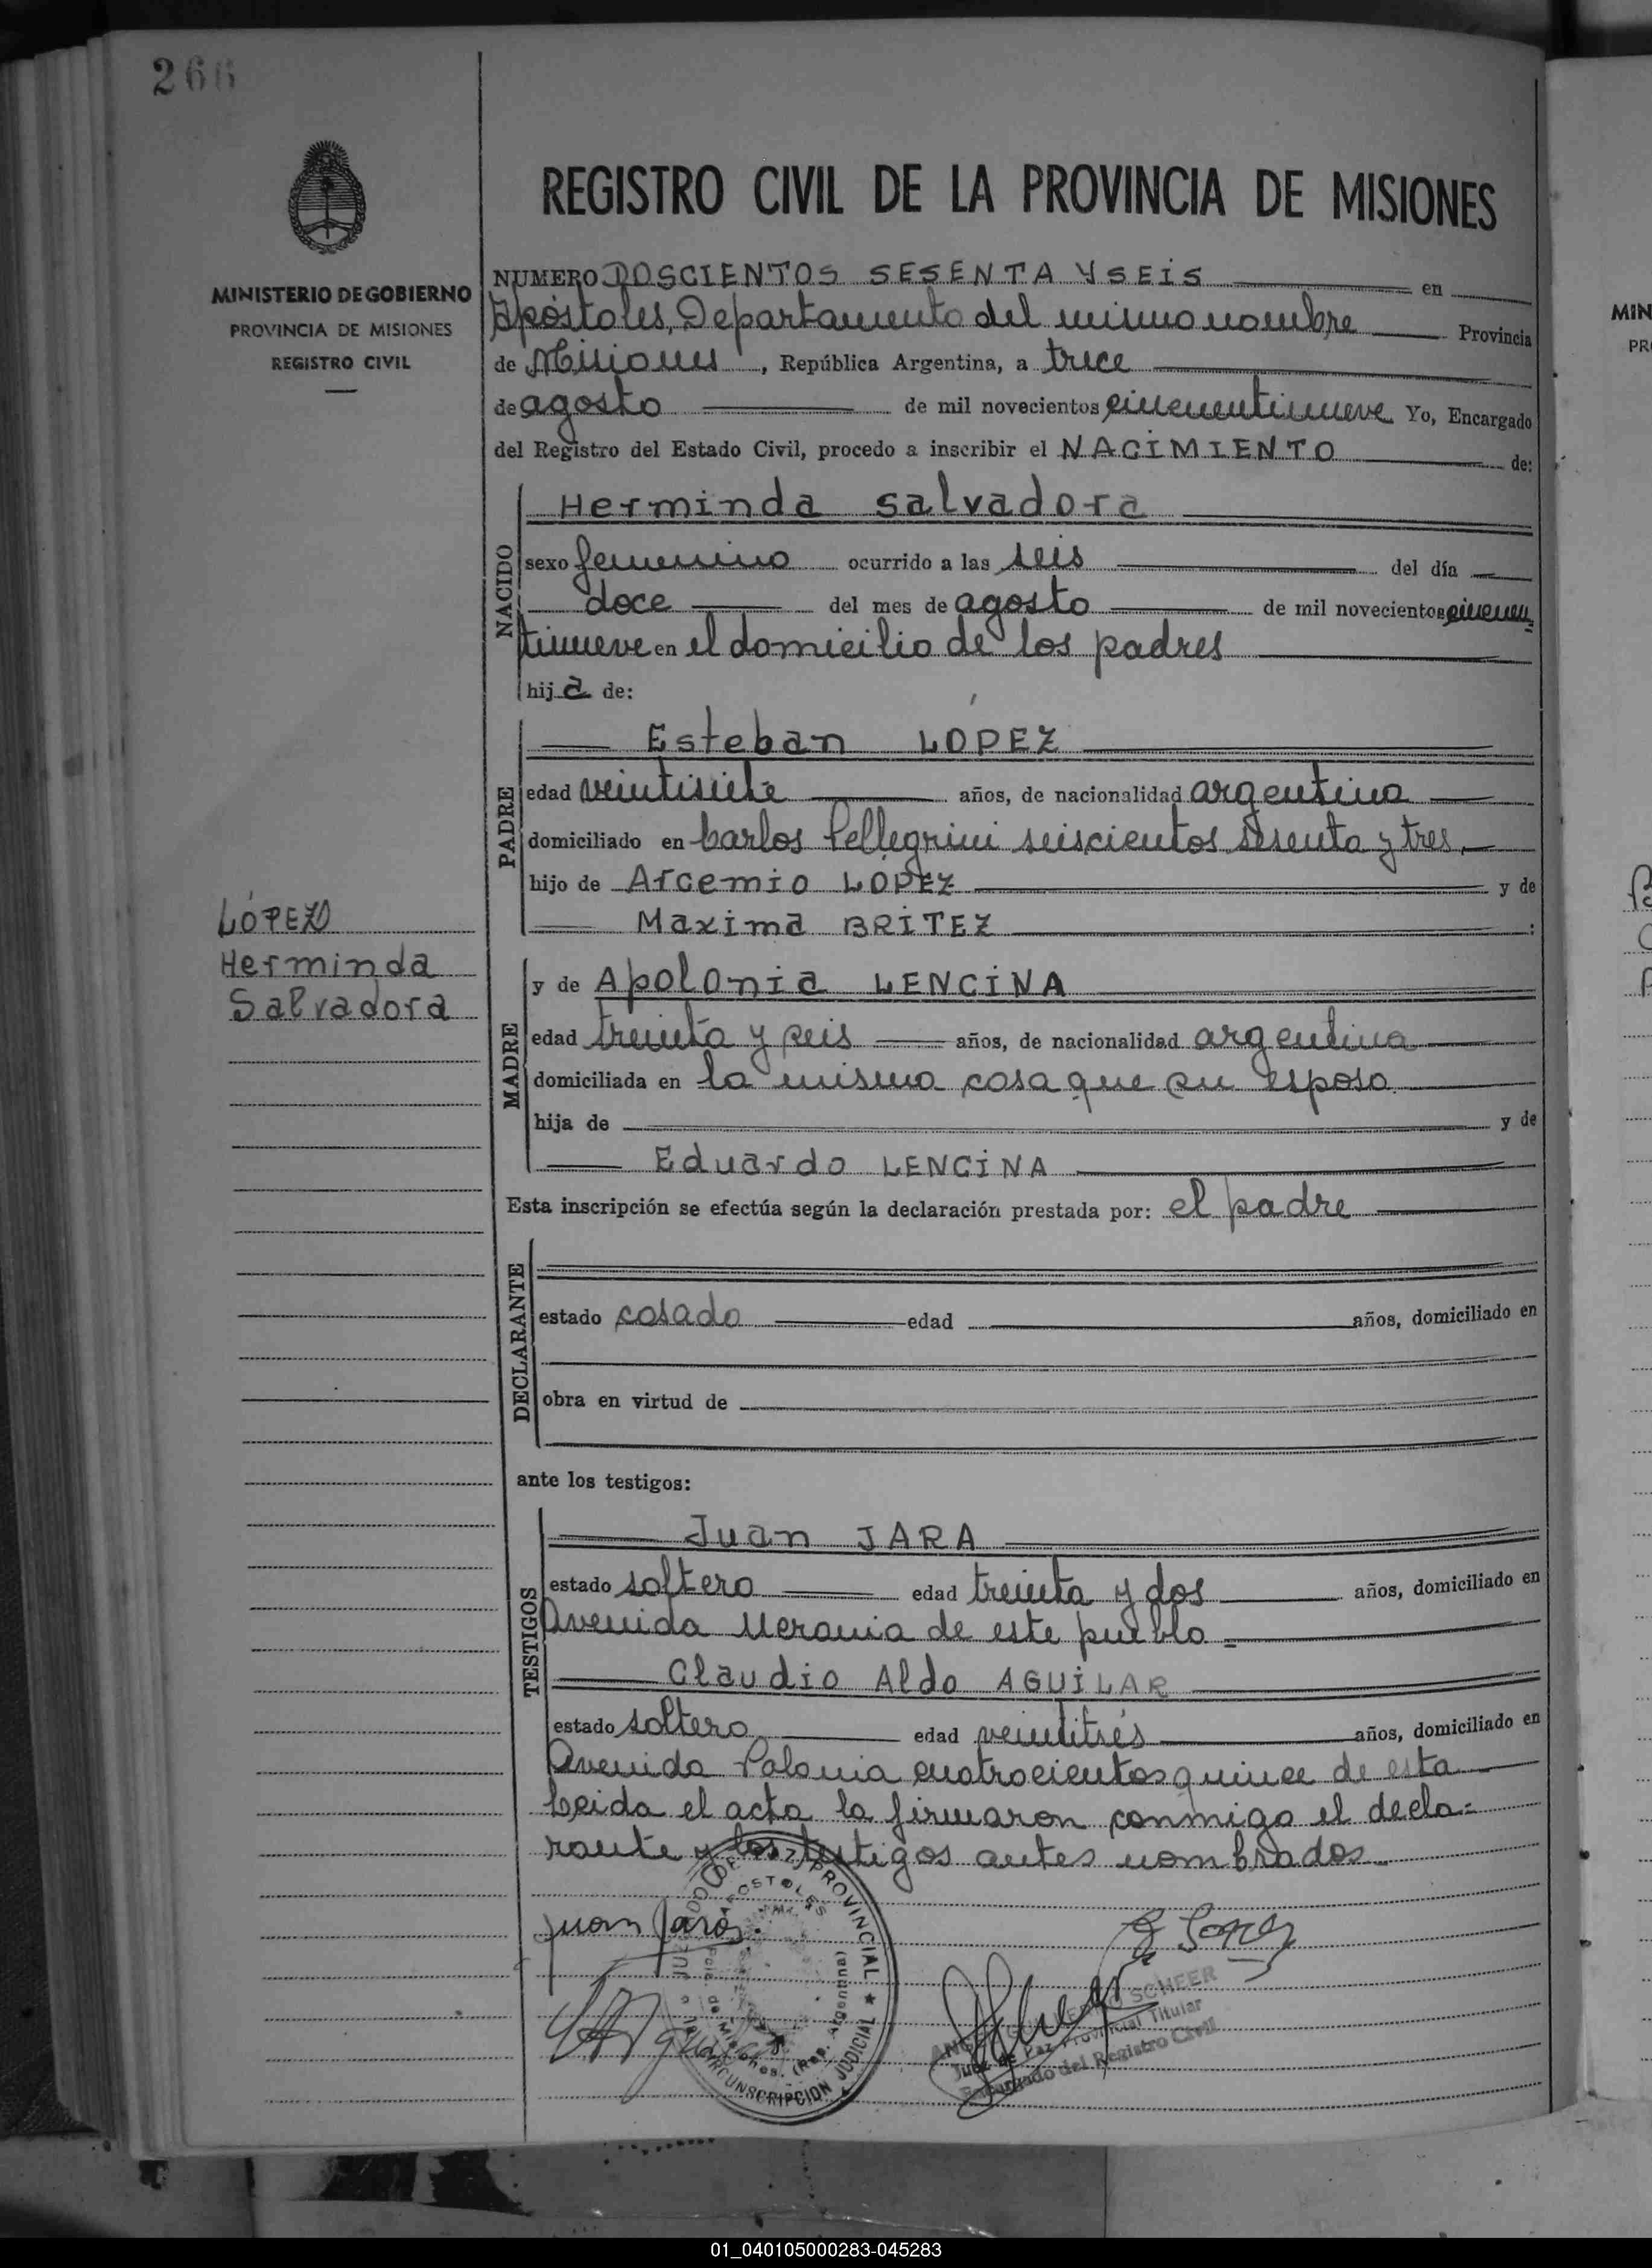 266
MINISTERIO DE GOBIERNO
PROVINCIA DE MISIONES
REGISTRO CIVIL
REGISTRO CIVIL DE LA PROVINCIA DE MISIONES
NUMERO DOSCIENTOS SESENTA Y SEIS en
Apóstoles, Departamento del mismo nombre Provincia
de Misiones, República Argentina, a trece
de agosto de mil novecientos cincuentinueve Yo, Encargado
del Registro del Estado Civil, procedo a inscribir el NACIMIENTO de:
NACIDO
Herminda Salvadora
sexo femenino ocurrido a las seis del día
doce del mes de agosto de mil novecientos cincuen
tinueve en el domicilio de los padres
hija de:
PADRE
Esteban LÓPEZ
edad veintisiete años, de nacionalidad argentina
domiciliado en Carlos Pellegrini seiscientos sesenta y tres
hijo de Arcemio LOPEZ y de
Maxima BRITEZ :
LÓPEZ
Herminda
Salvadora
MADRE
y de Apolonia LENCINA
edad treinta y seis años, de nacionalidad argentina
domiciliada en la misma casa que su esposo
hija de y de
Eduardo LENCINA
Esta inscripción se efectúa según la declaración prestada por: el padre
DECLARANTE
estado casado edad años, domiciliado en
obra en virtud de
ante los testigos:
TESTIGOS
Juan JARA
estado soltero edad treinta y dos años, domiciliado en
Avenida Ucrania de este pueblo
Claudio Aldo AGUILAR
estado soltero edad veintitrés años, domiciliado en
Avenida Polonia cuatrocientos quince de esta
Leida el acta la firmaron conmigo el decla=
rante y los testigos antes nombrados
Juan Jara
JUZGADO DE PAZ PROVINCIAL
APOSTOLES
de Misiones. (Rep. Argentina)
CIRCUNSCRIPCION JUDICIAL
SCHEER
Juez de Paz Provincial Titular
Encargado del Registro Civil
MIN
PR
01_040105000283-045283